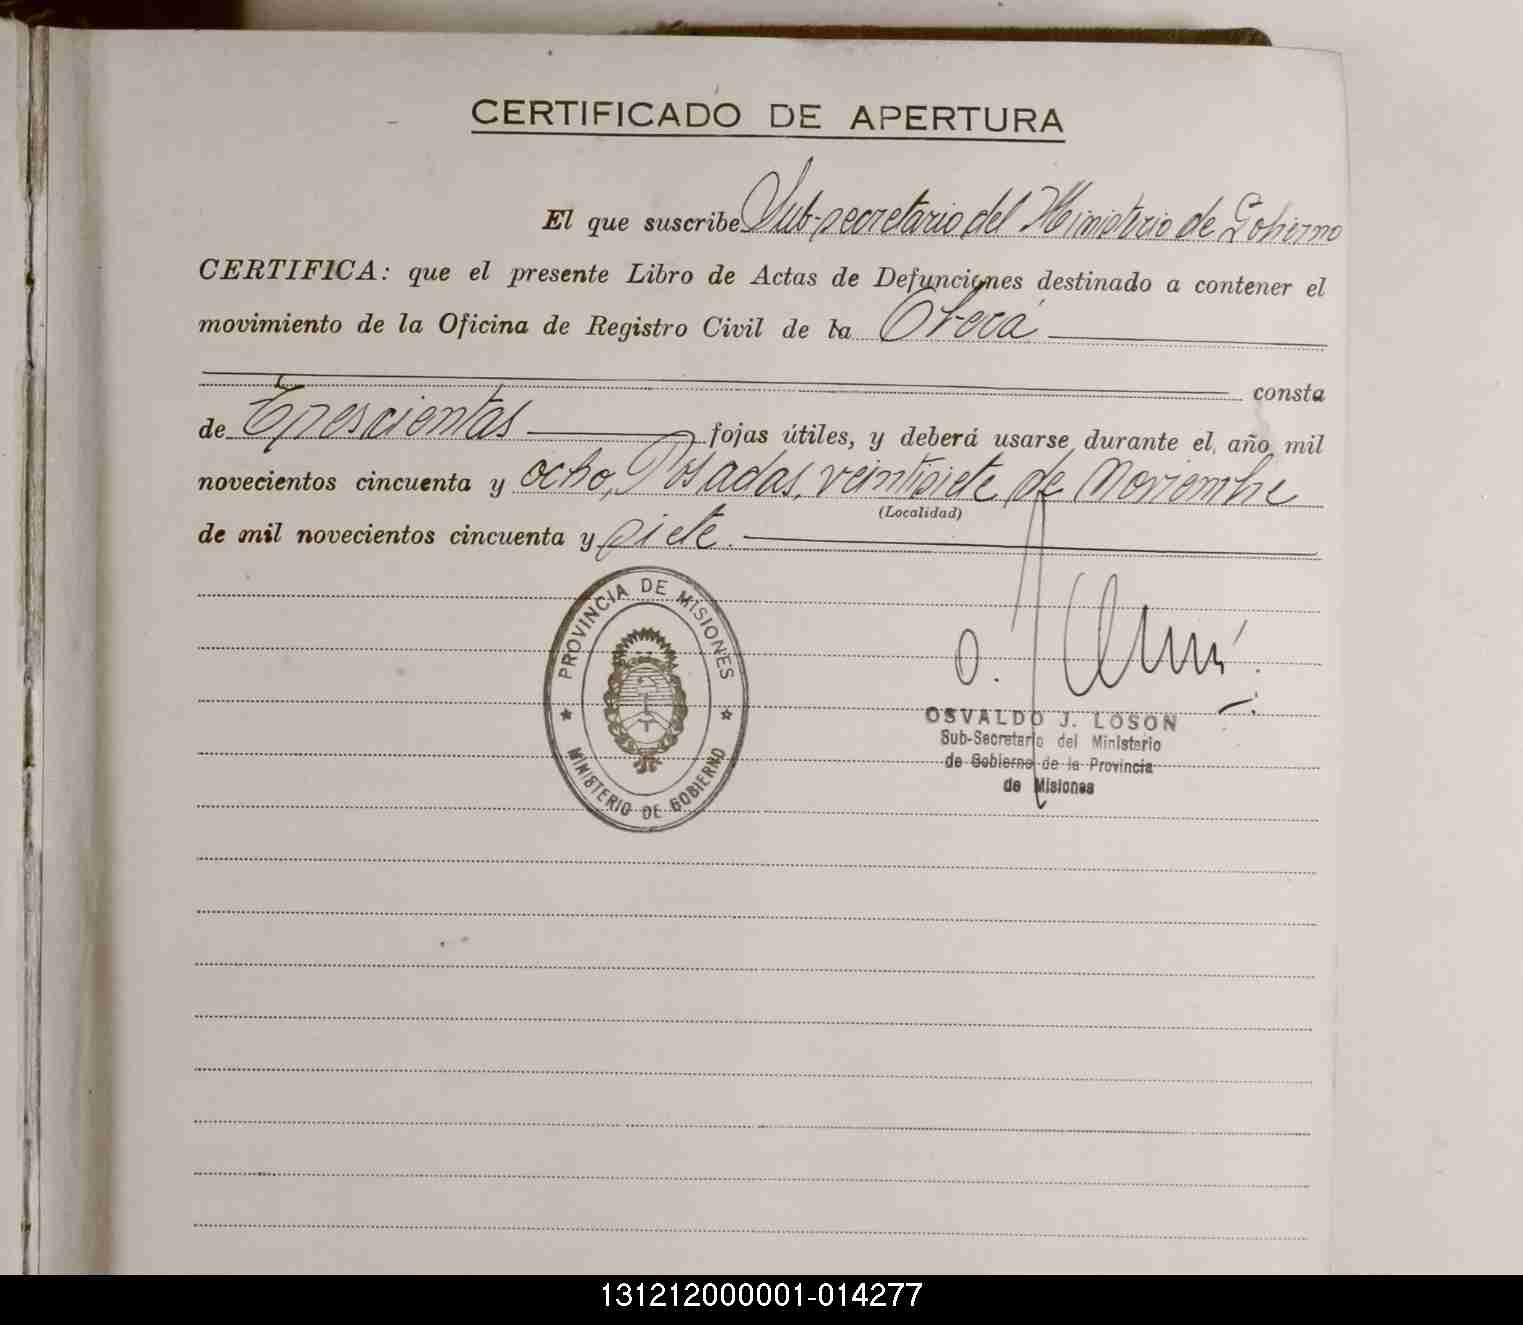 CERTIFICADO DE APERTURA
El que suscribe Sub-secretario del Ministerio de Gobierno
CERTIFICA: que el presente Libro de Actas de Defunciones destinado a contener el
movimiento de la Oficina de Registro Civil de la Oberá
consta
de Trescientas fojas útiles, y deberá usarse durante el año mil
novecientos cincuenta y ocho, Posadas, veintisiete de Noviembre
(Localidad)
de mil novecientos cincuenta y siete.
PROVINCIA DE MISIONES
MINISTERIO DE GOBIERNO
OSVALDO J. LOSON
Sub-Secretario del Ministerio
de Gobierno de la Provincia
de Misiones
131212000001-014277